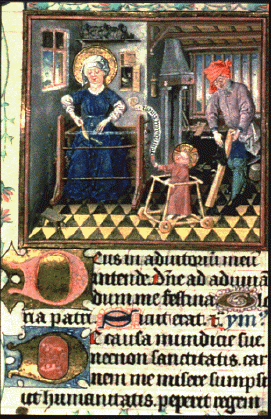 Deus in adiutoriū meū
intende. dn̄e ad adiuuā
dum me festina. Glo
ria patri. Sicut erat. ym̄
causa mundicie sue
necnon sanctitatis. car
nem me misere sumpsit
ut humanitatis. peperit regem